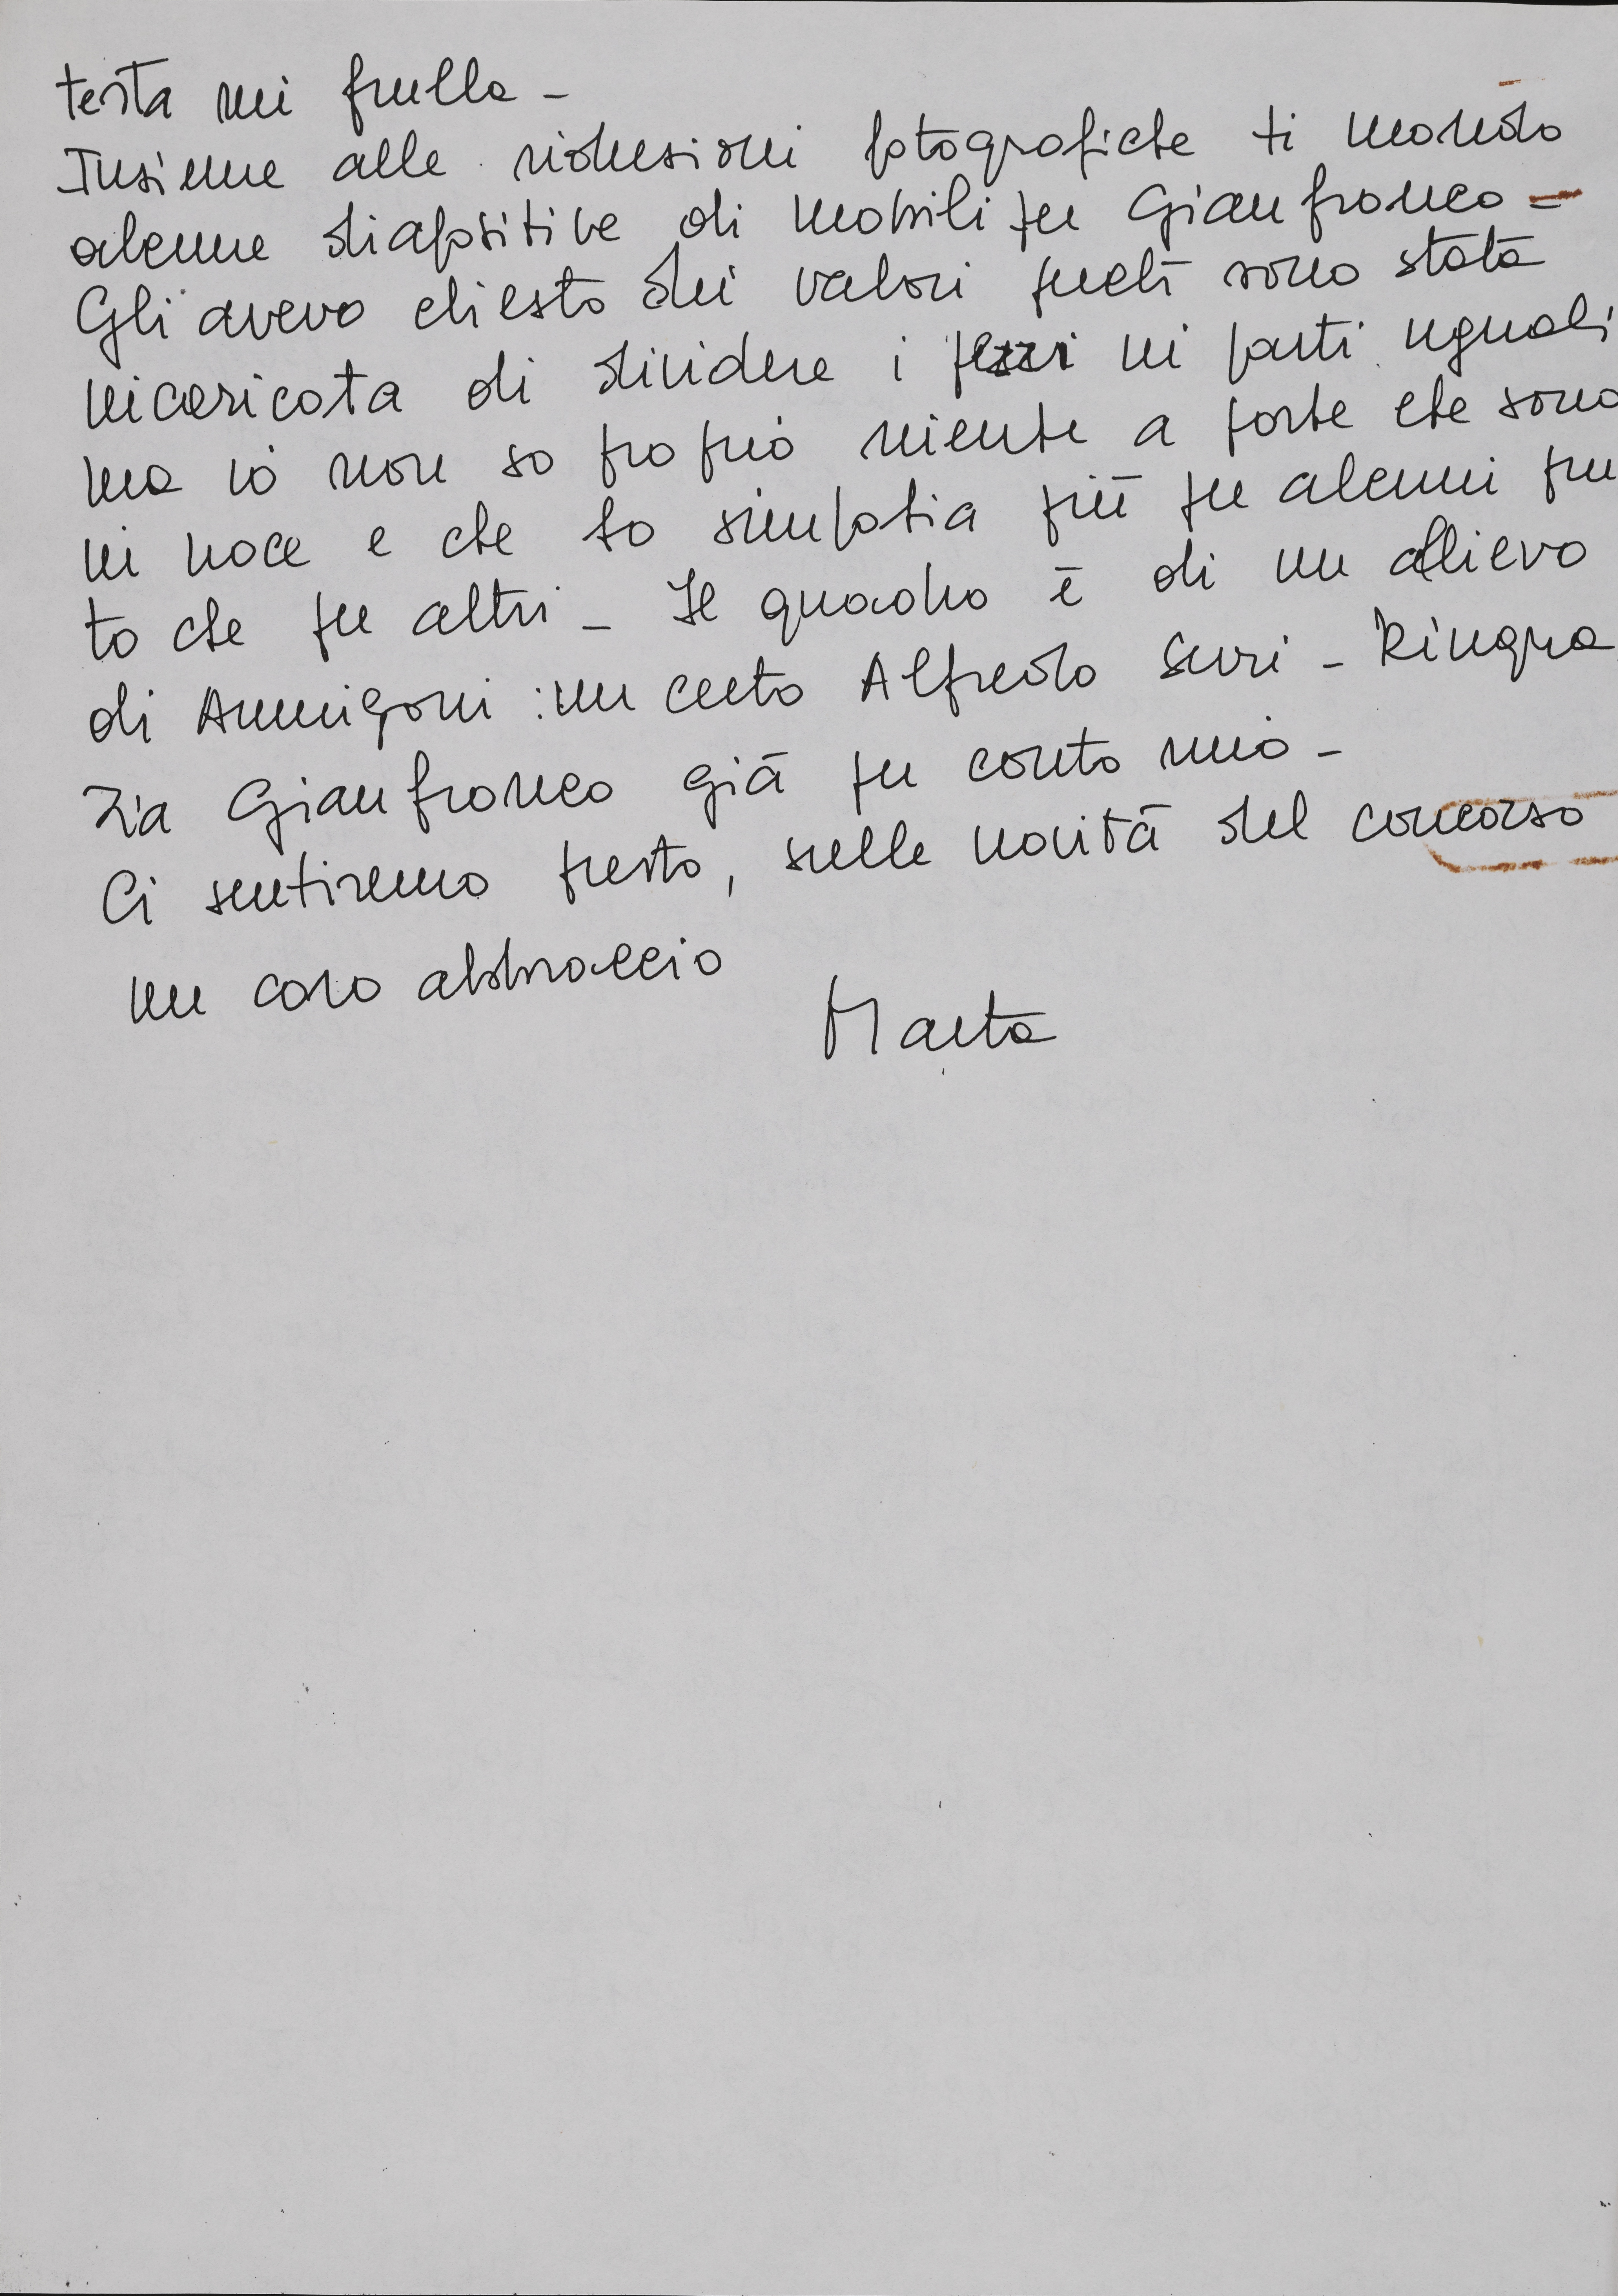 testa mi frulla -
Insieme alle riduzioni fotografiche ti mando
alcune diapositive di mobili per Gianfranco -
Gli avevo chiesto dei valori perchè sono stata
incaricata di dividere i pezzi in parti uguali
ma io non so proprio niente a parte che sono
in noce e che ho simpatia più per alcuni piut
to che per altri - Il quadro è di un allievo
di Annigoni : un certo Alfredo Serri - Ringra
zia Gianfranco già per conto mio -
Ci sentiremo presto, sulle novità del concorso
un caro abbraccio
Marta